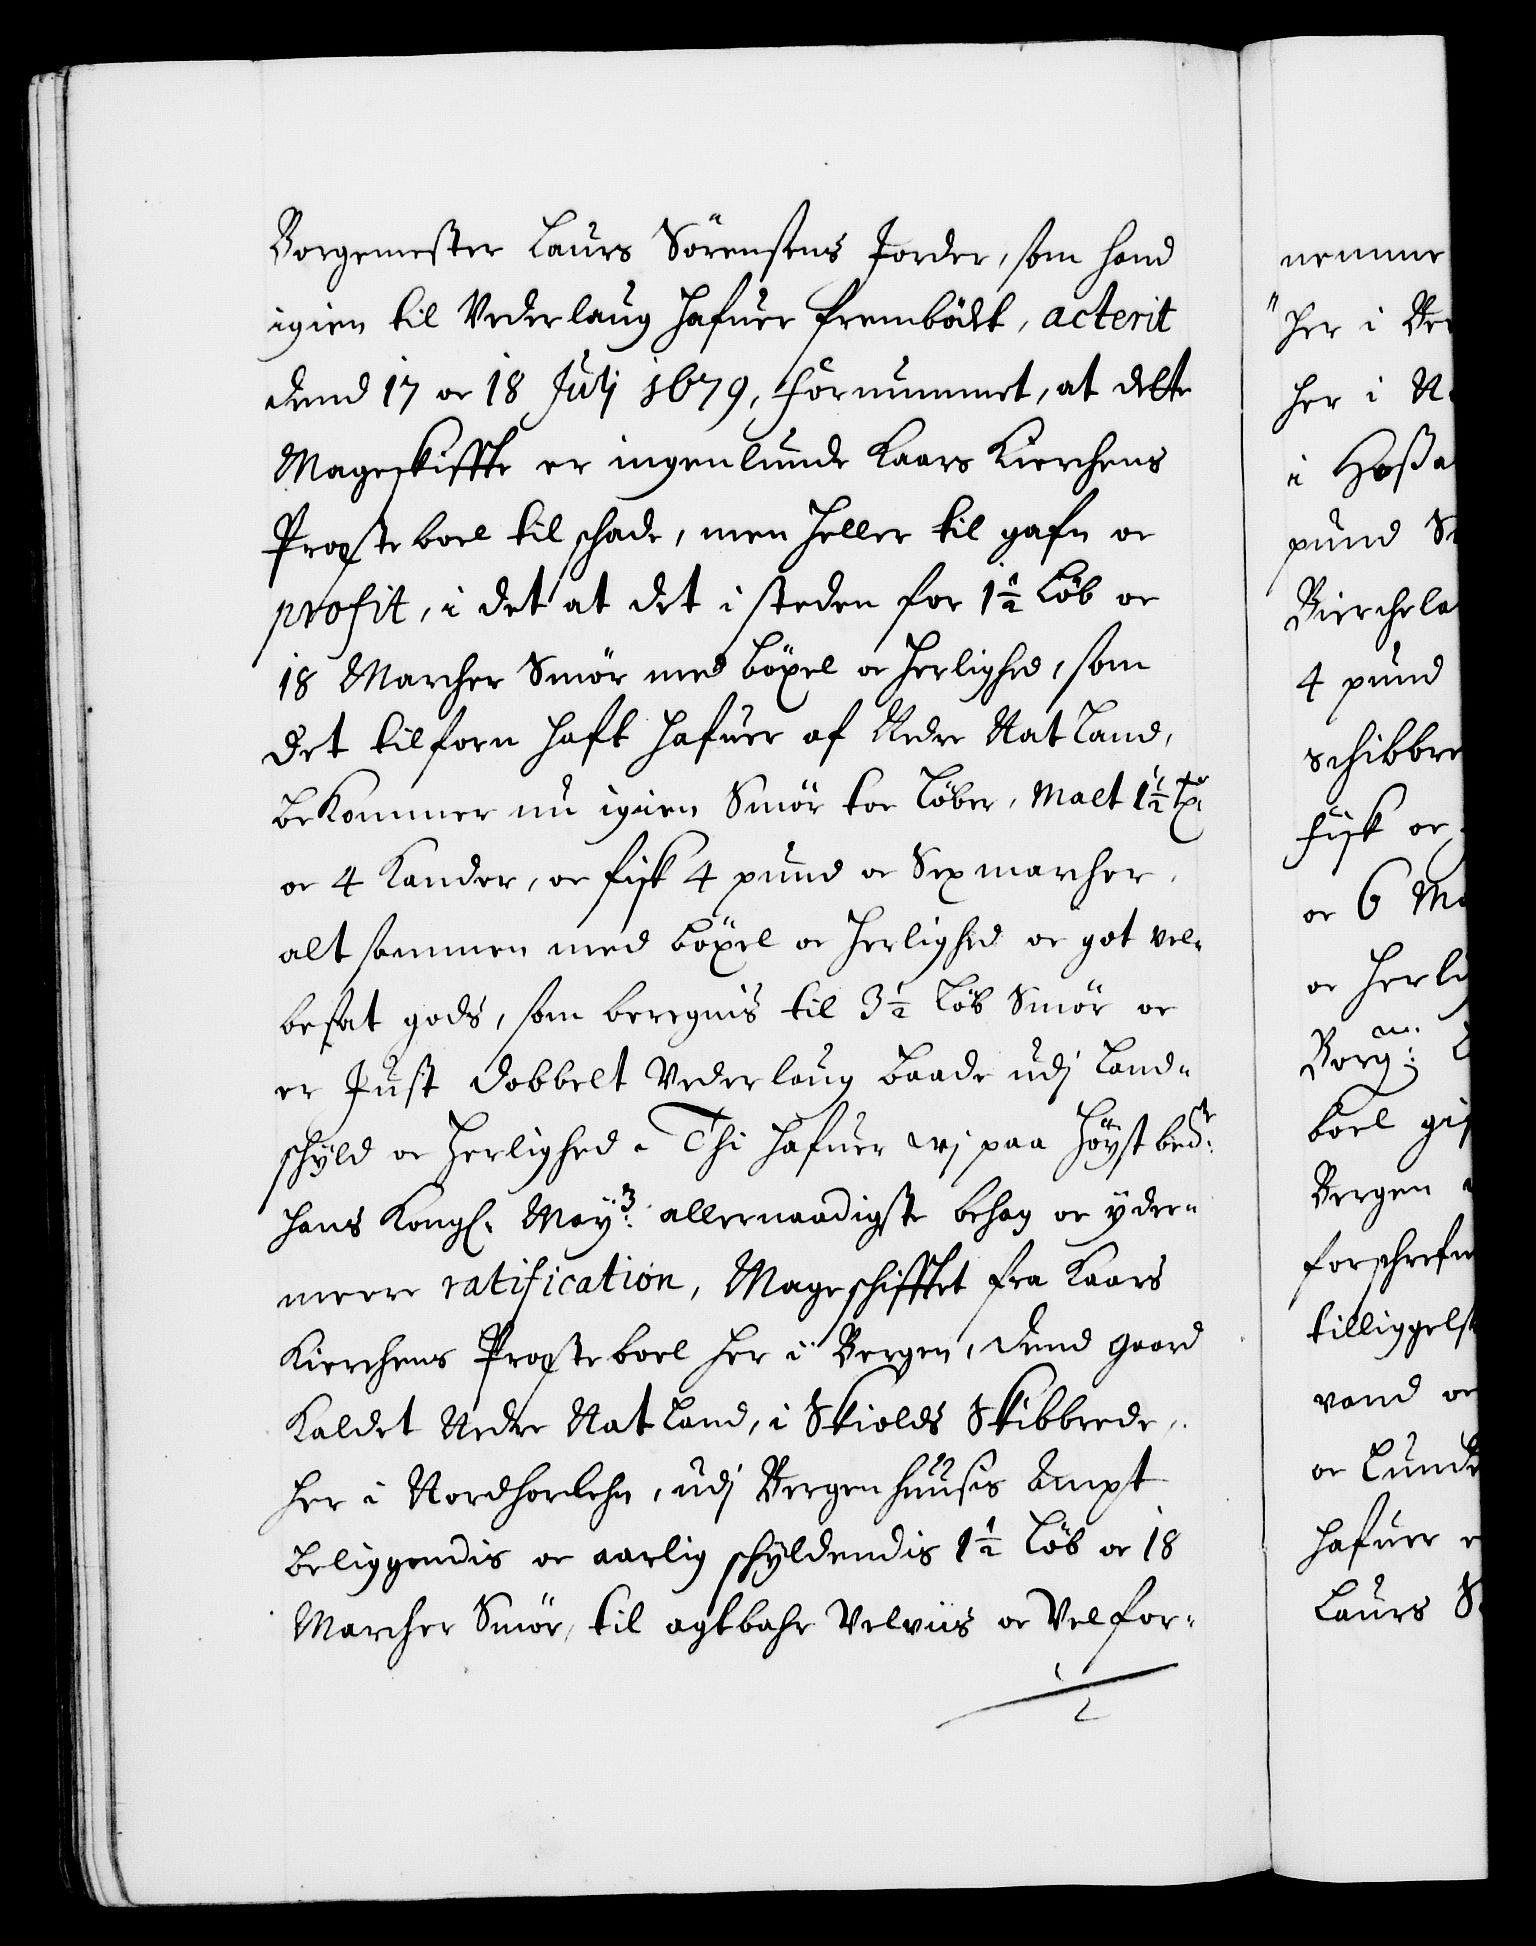 Borgemester Laurs Sörensens Jorder, som hand
igien til Vederlaug hafuer frembödt, acterit
dend 17 oc 18 Julj 1679, fornummet, at dette
Mageskiffte er ingenlunde Kaars Kierchens
Præste boel til schade, men heller til gafn oc
profit, i det at det i steden for 1½ Löb oc
18 Marcher Smör med böxel oc herlighed, som
det tilforn haft hafuer af Nedre Natland,
bekommer nu igien Smör toe Löber, Malt 1½ Tr
oc 4 Kander, oc fisk 4 pund oc Sex marcher,
alt sammen med böxel oc herlighed oc got vel-
besat gods, som beregnis til 3½ Löb Smör oc
er Just dobbelt Vederlaug baade udj Land-
schyld oc herlighed. Thi hafuer wj paa höystbemt:
hans Kongl. Mayts: allernaadigste behag oc yder-
meere ratification, Mageschifftet fra Kaars
Kierchens Præste boel her i Bergen, dend gaard
Kaldet Nedre Natland, i Skiolds Skibbrede,
her i Nordhorlehn, udj Bergenhuusis Ampt
beliggendis oc aarlig schyldendis 1½ Löb oc 18
Marcher Smör, til agtbahr Velviis oc Velfor-
nemme
her i Ber
her i N
i Hoßa
pund S
Bierchela
4 pund
schibbre
fisk oc
oc 6 Ma
oc herli
Borgm: L
boel gif
Bergen
forschrefn
tilliggelse
vand oc
oc Lunde
hafuer
Laurs S